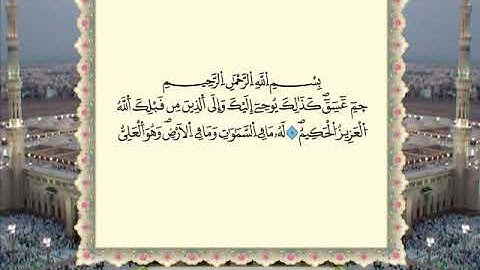 بِسْمِ اِللَّهِ اِلرَّحْمَٰنِ اِلرَّحِيمِ
حٓمٓ عٓسٓقٓۖ كَذَٰلِكَ يُوحِےٓ إِلَيْكَ وَإِلَى اَلذِينَ مِن قَبْلِكَ اَللَّهُ
اُلْعَزِيزُ اُلْحَكِيمُۖ ١ لَهُۥ مَا فِے اِلسَّمَٰوَٰتِ وَمَا فِے اِلْأَرْضِۖ وَهُوَ اَلْعَلِيُّ